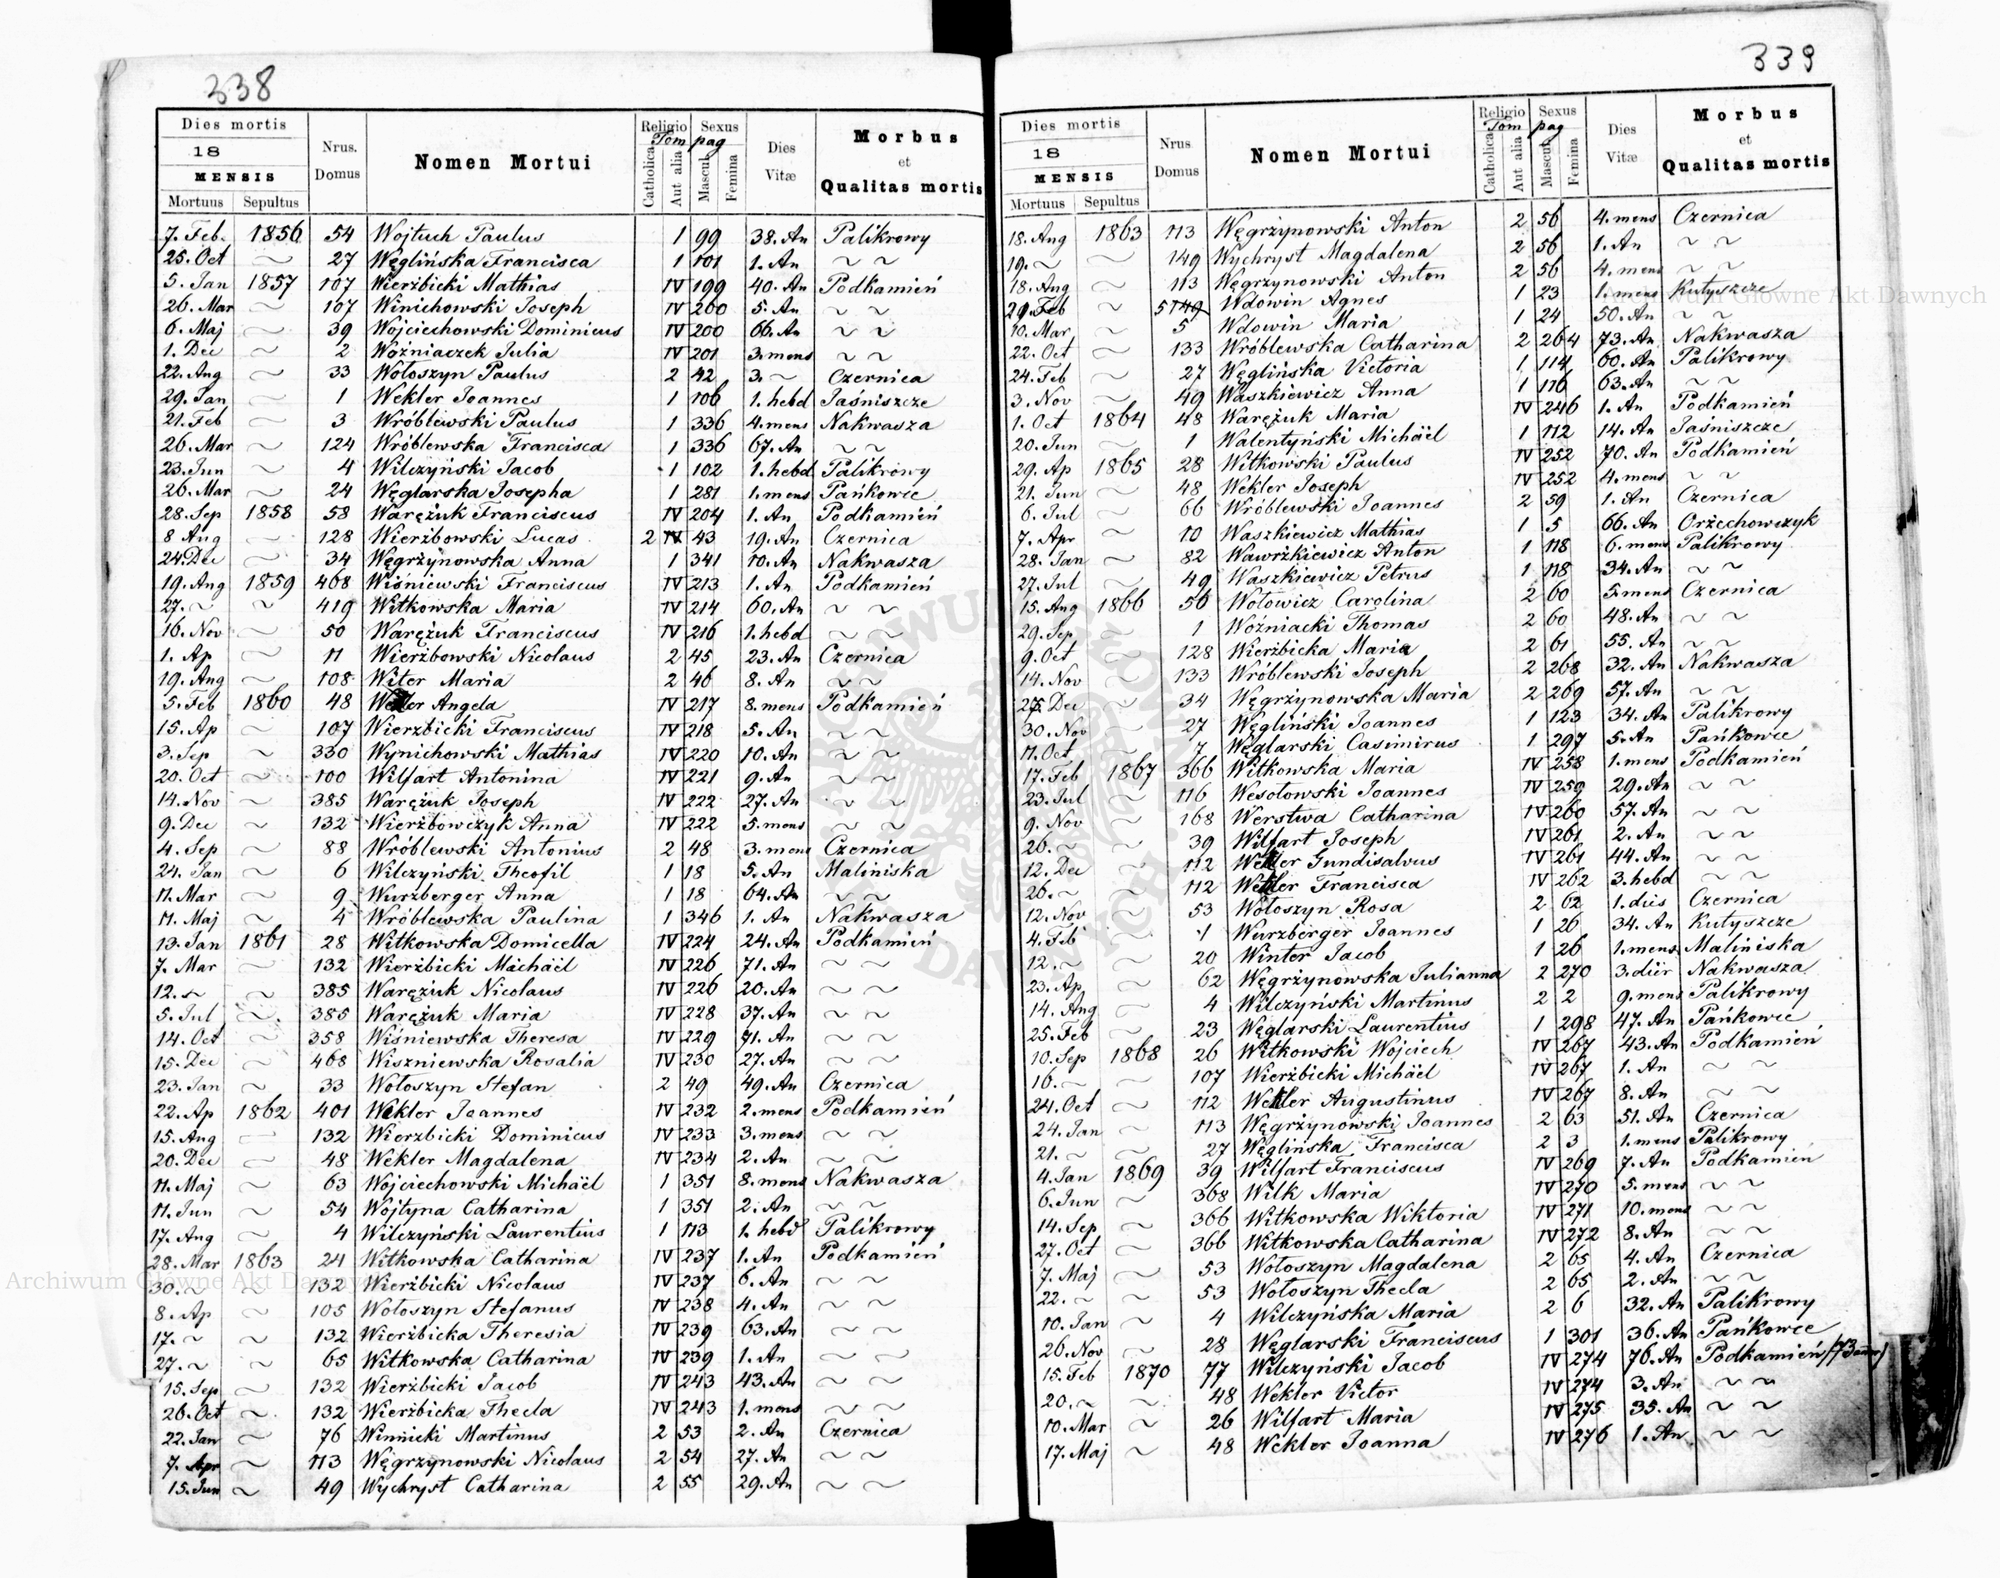 338
Dies mortis Nrus. Domus Nomen Mortui Religio Sexus Dies Vitæ Morbus et Qualitas mortis
18 Tom pag
MENSIS Catholica Aut alia Mascul Femina
Mortuus Sepultus
7. Feb. 1856 54 Wojtuch Paulus 1 99 38. An Palikrowy
25. Oct ~ 27 Węglińska Francisca 1 101 1. An ~ ~
5. Jan 1857 107 Wierżbicki Mathias IV 199 40. An Podkamień
26. Mar ~ 107 Winichowski Joseph IV 200 5. An ~ ~
6. Maj ~ 39 Wojciechowski Dominicus IV 200 66. An ~ ~
1. Dec ~ 2 Woźniaczek Julia IV 201 3. mens ~ ~
22. Aug ~ 33 Wołoszyn Paulus 2 42 3. ~ Czernica
29. Jan ~ 1 Wekler Joannes 1 106 1. hebd Jaśniszcze
21. Feb ~ 3 Wróblewski Paulus 1 336 4. mens Nakwasza
26. Mar ~ 124 Wróblewska Francisca 1 336 67. An ~ ~
23. Jun ~ 4 Wilczyński Jacob 1 102 1. hebd Palikrowy
26. Mar ~ 24 Węglarska Josepha 1 281 1. mens Pańkowce
28. Sep 1858 58 Waręźuk Franciscus IV 204 1. An Podkamień
8 Aug ~ 128 Wierżbowski Lucas 2 IV 43 19. An Czernica
24. Dec ~ 34 Węgrżynowska Anna 1 341 10. An Nakwasza
19. Aug 1859 468 Wiśniewski Franciscus IV 213 1. An Podkamień
27. ~ ~ 419 Witkowska Maria IV 214 60. An ~ ~
16. Nov ~ 50 Waręźuk Franciscus IV 216 1. hebd ~ ~
1. Ap ~ 11 Wierżbowski Nicolaus 2 45 23. An Czernica
19. Aug ~ 108 Witer Maria 2 46 8. An ~ ~
5. Feb 1860 48 Wekler Angela IV 217 8. mens Podkamień
15. Ap ~ 107 Wierzbicki Franciscus IV 218 5. An ~ ~
3. Sep ~ 330 Wynichowski Mathias IV 220 10. An ~ ~
20. Oct ~ 100 Wilfart Antonina IV 221 9. An ~ ~
14. Nov ~ 385 Waręźuk Joseph IV 222 27. An ~ ~
9. Dec ~ 132 Wierżbowczyk Anna IV 222 5. mens ~ ~
4. Sep ~ 88 Wróblewski Antonius 2 48 3. mens Czernica
24. Jan ~ 6 Wilczyński Theofil 1 18 5. An Maliniska
11. Mar ~ 9 Wurzberger Anna 1 18 64. An ~ ~
11. Maj ~ 4 Wróblewska Paulina 1 346 1. An Nakwasza
13. Jan 1861 28 Witkowska Domicella IV 224 24. An Podkamień
7. Mar ~ 132 Wierżbicki Michäel IV 226 71. An ~ ~
12. ~ ~ 385 Waręźuk Nicolaus IV 226 20. An ~ ~
5. Jul ~ 385 Waręźuk Maria IV 228 37. An ~ ~
14. Oct ~ 358 Wiśniewska Theresa IV 229 71. An ~ ~
15. Dec ~ 468 Wiszniewska Rosalia IV 230 27. An ~ ~
23. Jan ~ 33 Wołoszyn Stefan 2 49 49. An Czernica
22. Ap 1862 401 Wekler Joannes IV 232 2. mens Podkamień
15. Aug ~ 132 Wierzbicki Dominicus IV 233 3. mens ~ ~
20. Dec ~ 48 Wekler Magdalena IV 234 2. An ~ ~
11. Maj ~ 63 Wojciechowski Michäel 1 351 8. mens Nakwasza
11. Jun ~ 54 Wojtyna Catharina 1 351 2. An ~ ~
17. Aug ~ 4 Wilczyński Laurentius 1 113 1. hebd Palikrowy
28. Mar 1863 24 Witkowska Catharina IV 237 1. An Podkamień
30. ~ ~ 132 Wierżbicki Nicolaus IV 237 6. An ~ ~
8. Ap ~ 105 Wołoszyn Stefanus IV 238 4. An ~ ~
17. ~ ~ 132 Wierżbicka Theresia IV 239 63. An ~ ~
27. ~ ~ 65 Witkowska Catharina IV 239 1. An ~ ~
15. Sep ~ 132 Wierżbicki Jacob IV 243 43. An ~ ~
26. Oct ~ 132 Wierżbicka Thecla IV 243 1. mens ~ ~
22. Jan ~ 76 Winnicki Martinus 2 53 2. An Czernica
7. Apr ~ 113 Węgrzynowski Nicolaus 2 54 27. An ~ ~
15. Jun ~ 49 Wychryst Catharina 2 55 29. An ~ ~
339
Dies mortis Nrus Domus Nomen Mortui Religio Sexus Dies Vitæ Morbus et Qualitas mortis
18 Tom pag
MENSIS Catholica Aut alia Mascul Femina
Mortuus Sepultus
18. Aug 1863 113 Węgrżynowski Anton 2 56 4. mens Czernica
19. ~ ~ 149 Wychryst Magdalena 2 56 1. An ~ ~
18. Aug ~ 113 Węgrzynowski Anton 2 56 4. mens ~ ~
29. Feb ~ 5 149 Wdowin Agnes 1 23 1. mens Kutyszcze
10. Mar ~ 5 Wdowin Maria 1 24 50. An ~ ~
22. Oct ~ 133 Wróblewska Catharina 2 264 73. An Nakwasza
24. Feb ~ 27 Węglińska Victoria 1 114 60. An Palikrowy
3. Nov ~ 49 Waszkiewicz Anna 1 116 63. An ~ ~
1. Oct 1864 48 Waręźuk Maria IV 246 1. An Podkamień
20. Jun ~ 1 Walentyński Michäel 1 112 14. An Jaśniszcze
29. Ap 1865 28 Witkowski Paulus IV 252 70. An Podkamień
21. Jun ~ 48 Wekler Joseph IV 252 4. mens ~ ~
6. Jul ~ 66 Wróblewski Joannes 2 59 1. An Czernica
7. Apr ~ 10 Waszkiewicz Mathias 1 5 66. An Orżechowczyk
28. Jan ~ 82 Wawrżkiewicz Anton 1 118 6. mens Palikrowy
27. Jul ~ 49 Waszkiewicz Petrus 1 118 34. An ~ ~
15. Aug 1866 56 Wołowicz Carolina 2 60 5. mens Czernica
29. Sep ~ 1 Woźniacki Thomas 2 60 48. An ~ ~
9. Oct ~ 128 Wierżbicka Maria 2 61 55. An ~ ~
14. Nov ~ 133 Wróblewski Joseph 2 268 32. An Nakwasza
25. Dec ~ 34 Węgrżynowska Maria 2 269 57. An ~ ~
30. Nov ~ 27 Węgliński Joannes 1 123 34. An Palikrowy
11. Oct ~ 7 Węglarski Casimirus 1 297 5. An Pańkowce
17. Feb 1867 366 Witkowska Maria IV 258 1. mens Podkamień
23. Jul ~ 116 Wesołowski Joannes IV 259 29. An ~ ~
9. Nov ~ 168 Werstwa Catharina IV 260 57. An ~ ~
26. ~ ~ 39 Wilfart Joseph IV 261 2. An ~ ~
12. Dec ~ 112 Wekler Gundisalvus IV 261 44. An ~ ~
26. ~ ~ 112 Wekler Francisca IV 262 3. hebd ~ ~
12. Nov ~ 53 Wołoszyn Rosa 2 62 1. dies Czernica
4. Feb ~ 1 Wurzberger Joannes 1 26 34. An Kutyszcze
12. ~ ~ 20 Winter Jacob 1 26 1. mens Maliniska
23. Ap ~ 62 Węgrżynowska Julianna 2 270 3. dier Nakwasza
14. Aug ~ 4 Wilczyński Martinus 2 2 9. mens Palikrowy
25. Feb ~ 23 Węglarski Laurentius 1 298 47. An Pańkowce
10. Sep 1868 26 Witkowski Wojciech IV 267 43. An Podkamień
16. ~ ~ 107 Wierżbicki Michäel IV 267 1. An ~ ~
24. Oct ~ 112 Wekler Augustinus IV 267 8. An ~ ~
24. Jan ~ 113 Węgrżynowski Joannes 2 63 51. An Czernica
21. ~ ~ 27 Węglińska Francisca 2 3 1. mens Palikrowy
4. Jan 1869 39 Wilfart Franciscus IV 269 7. An Podkamień
6. Jun ~ 368 Wilk Maria IV 270 5. mens ~ ~
14. Sep ~ 366 Witkowska Wiktoria IV 271 10. mens ~ ~
27. Oct ~ 366 Witkowska Catharina IV 272 8. An ~ ~
7. Maj ~ 53 Wołoszyn Magdalena 2 65 4. An Czernica
22. ~ ~ 53 Wołoszyn Thecla 2 65 2. An ~ ~
10. Jan ~ 4 Wilczyńska Maria 2 6 32. An Palikrowy
26. Nov ~ 28 Węglarski Franciscus 1 301 36. An Pańkowce
15. Feb 1870 77 Wilczyński Jacob IV 274 76. An Podkamień
20. ~ ~ 48 Wekler Victor IV 274 3. An ~ ~
10. Mar ~ 26 Wilfart Maria IV 275 35. An ~ ~
17. Maj ~ 48 Wekler Joanna IV 276 1. An ~ ~
Archiwum Główne Akt Dawnych
Archiwum Główne Akt Dawnych
ARCHIWUM GŁÓWNE AKT DAWNYCH